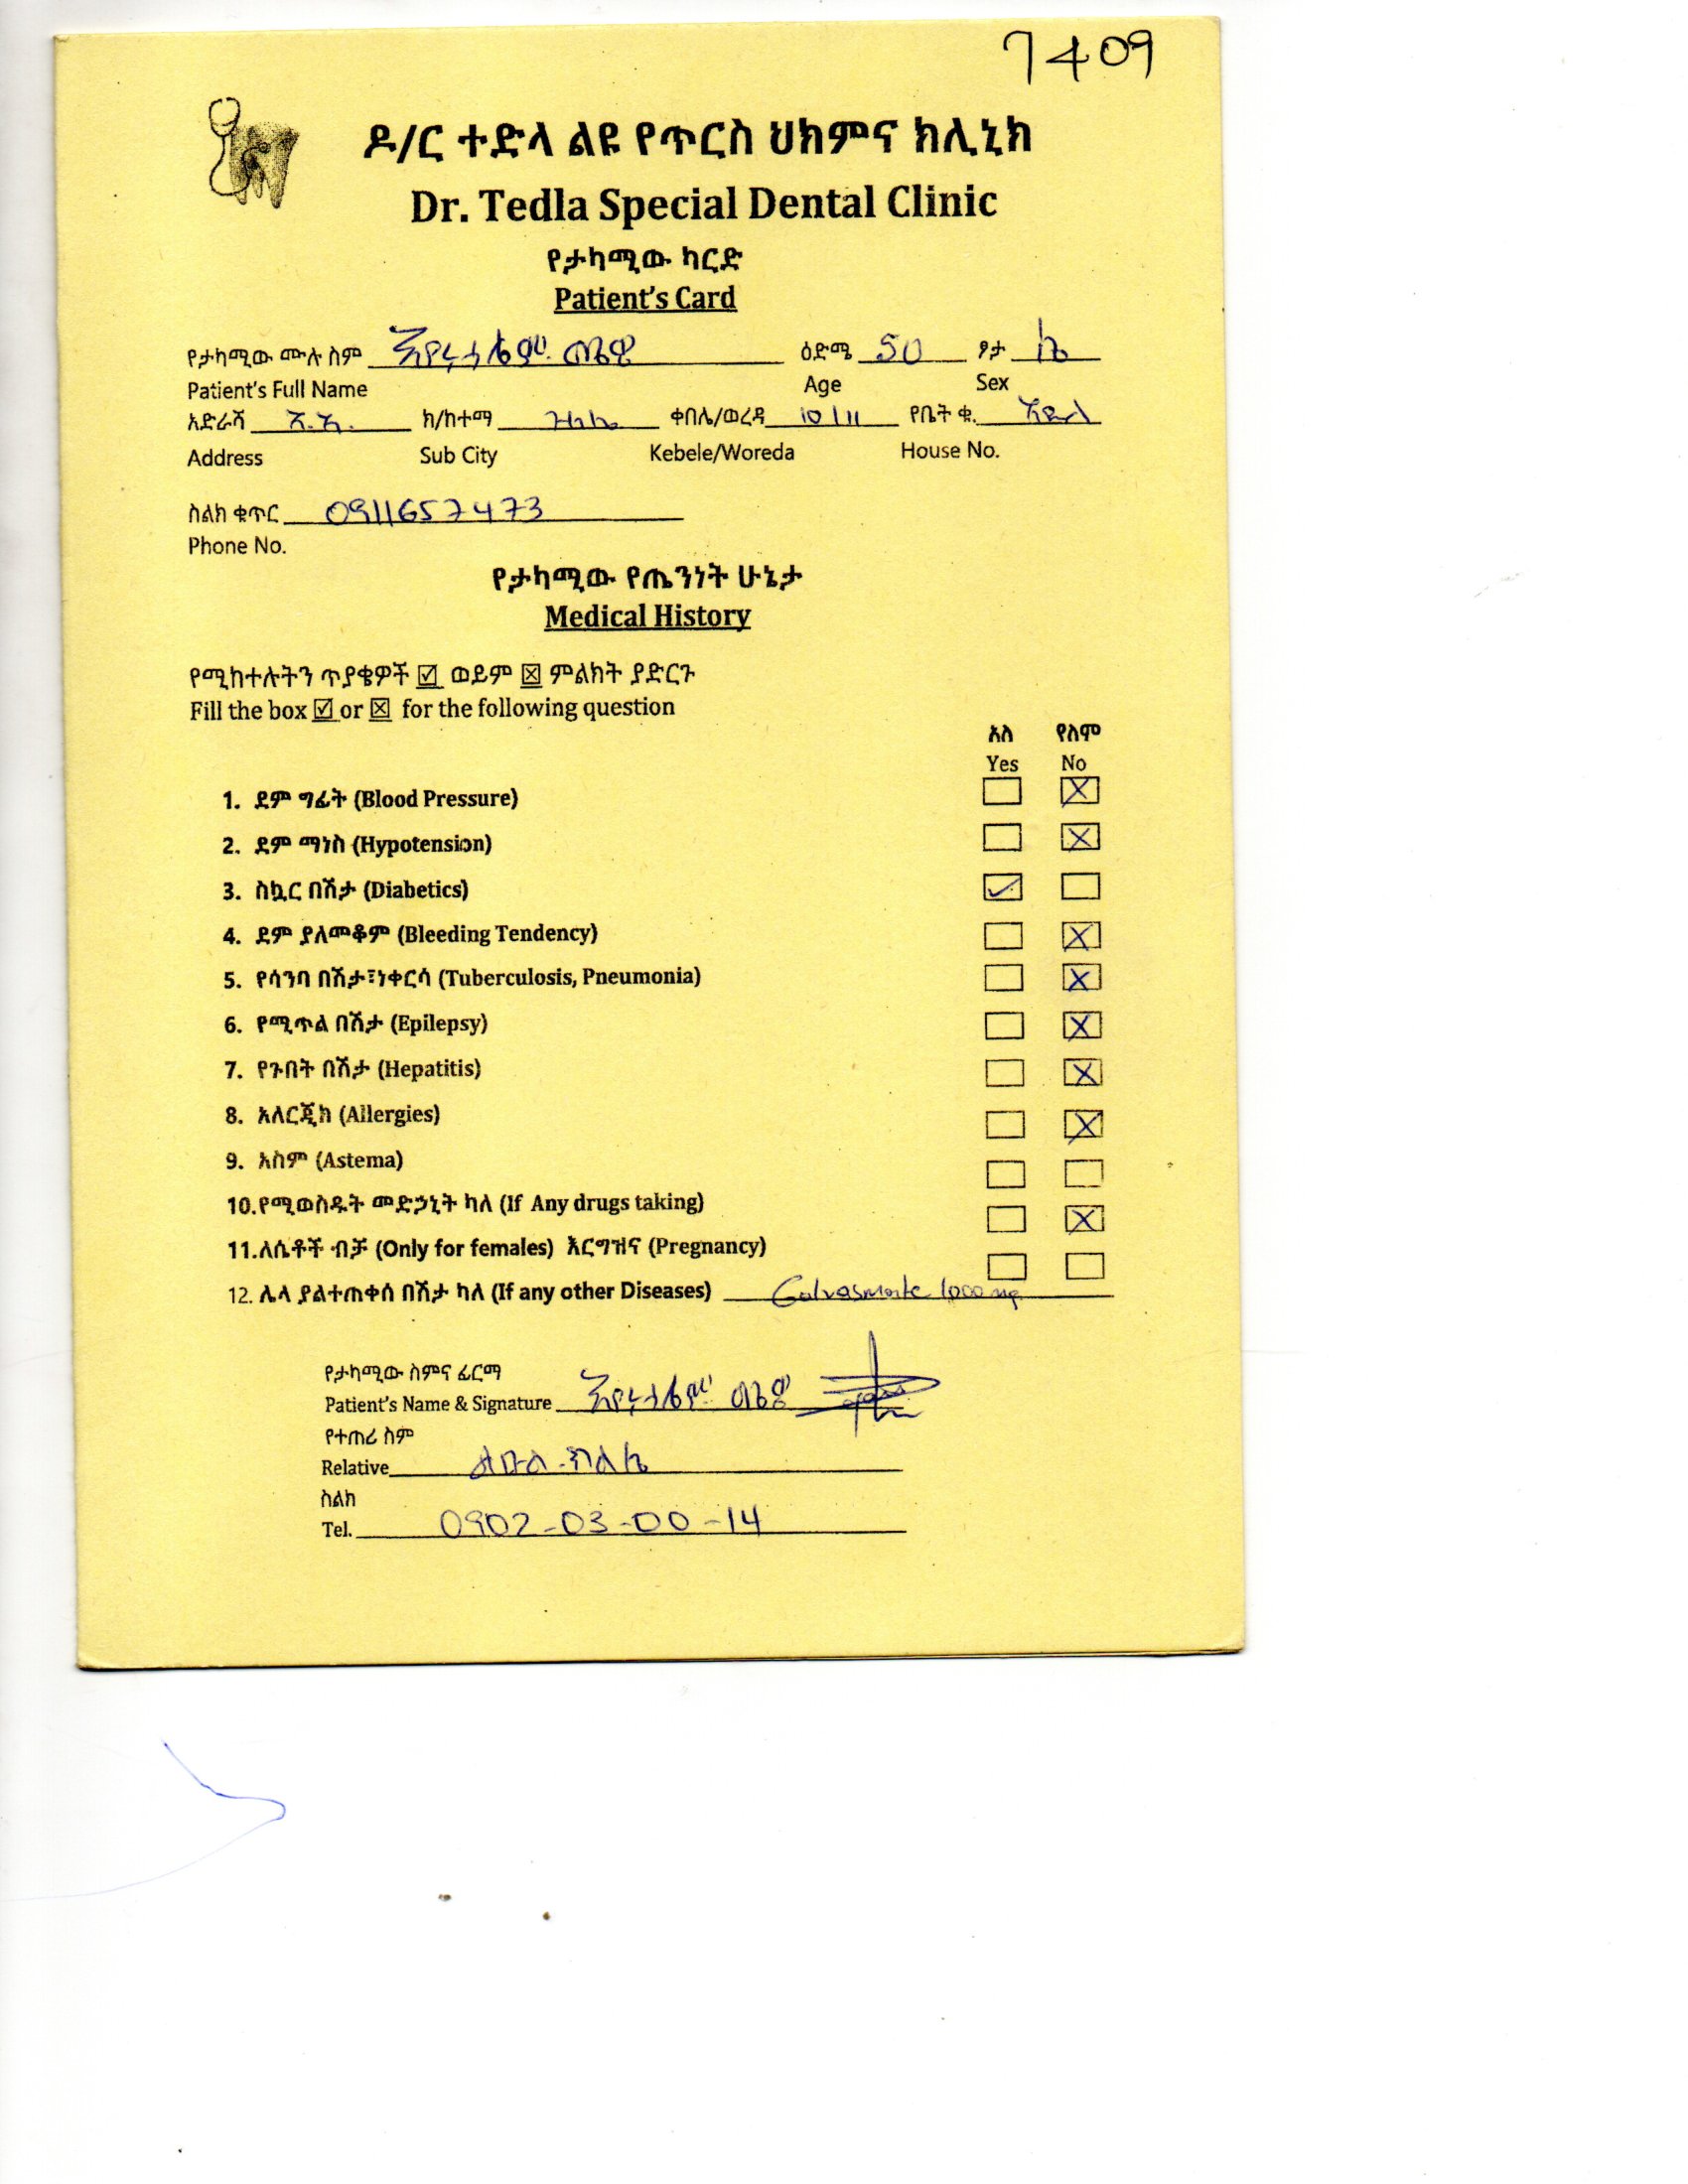 7409
ዶ/ር ተድላ ልዩ የጥርስ ህክምና ክሊኒክ
Dr. Tedla Special Dental Clinic
የታካሚው ካርድ
Patient's Card
የታካሚው ሙሉ ስም እየሩሳሌም ዕድሜ 50 ፆታ
Patient's Full Name Age Sex
አድራሻ አ.አ. ክ/ከተማ ቀበሌ/ወረዳ 10/11 የቤት ቁ. አዲስ
Address Sub City Kebele/Woreda House No.
ስልክ ቁጥር 0911657473
Phone No.
የታካሚው የጤንነት ሁኔታ
Medical History
የሚከተሉትን ጥያቄዎች ☑ ወይም ☒ ምልክት ያድርጉ
Fill the box ☑ or ☒ for the following question
አለ የለም
Yes No
1. ደም ግፊት (Blood Pressure)
2. ደም ማነስ (Hypotension)
3. ስኳር በሽታ (Diabetics)
4. ደም ያለመቆም (Bleeding Tendency)
5. የሳንባ በሽታ፣ነቀርሳ (Tuberculosis, Pneumonia)
6. የሚጥል በሽታ (Epilepsy)
7. የጉበት በሽታ (Hepatitis)
8. አለርጂክ (Allergies)
9. አስም (Astema)
10.የሚወስዱት መድኃኒት ካለ (If Any drugs taking)
11.ለሴቶች ብቻ (Only for females) እርግዝና (Pregnancy)
12. ሌላ ያልተጠቀሰ በሽታ ካለ (If any other Diseases) 1000 mg
የታካሚው ስምና ፊርማ
Patient's Name & Signature እየሩሳሌም
የተጠሪ ስም
Relative
ስልክ
Tel. 0902-03-00-14